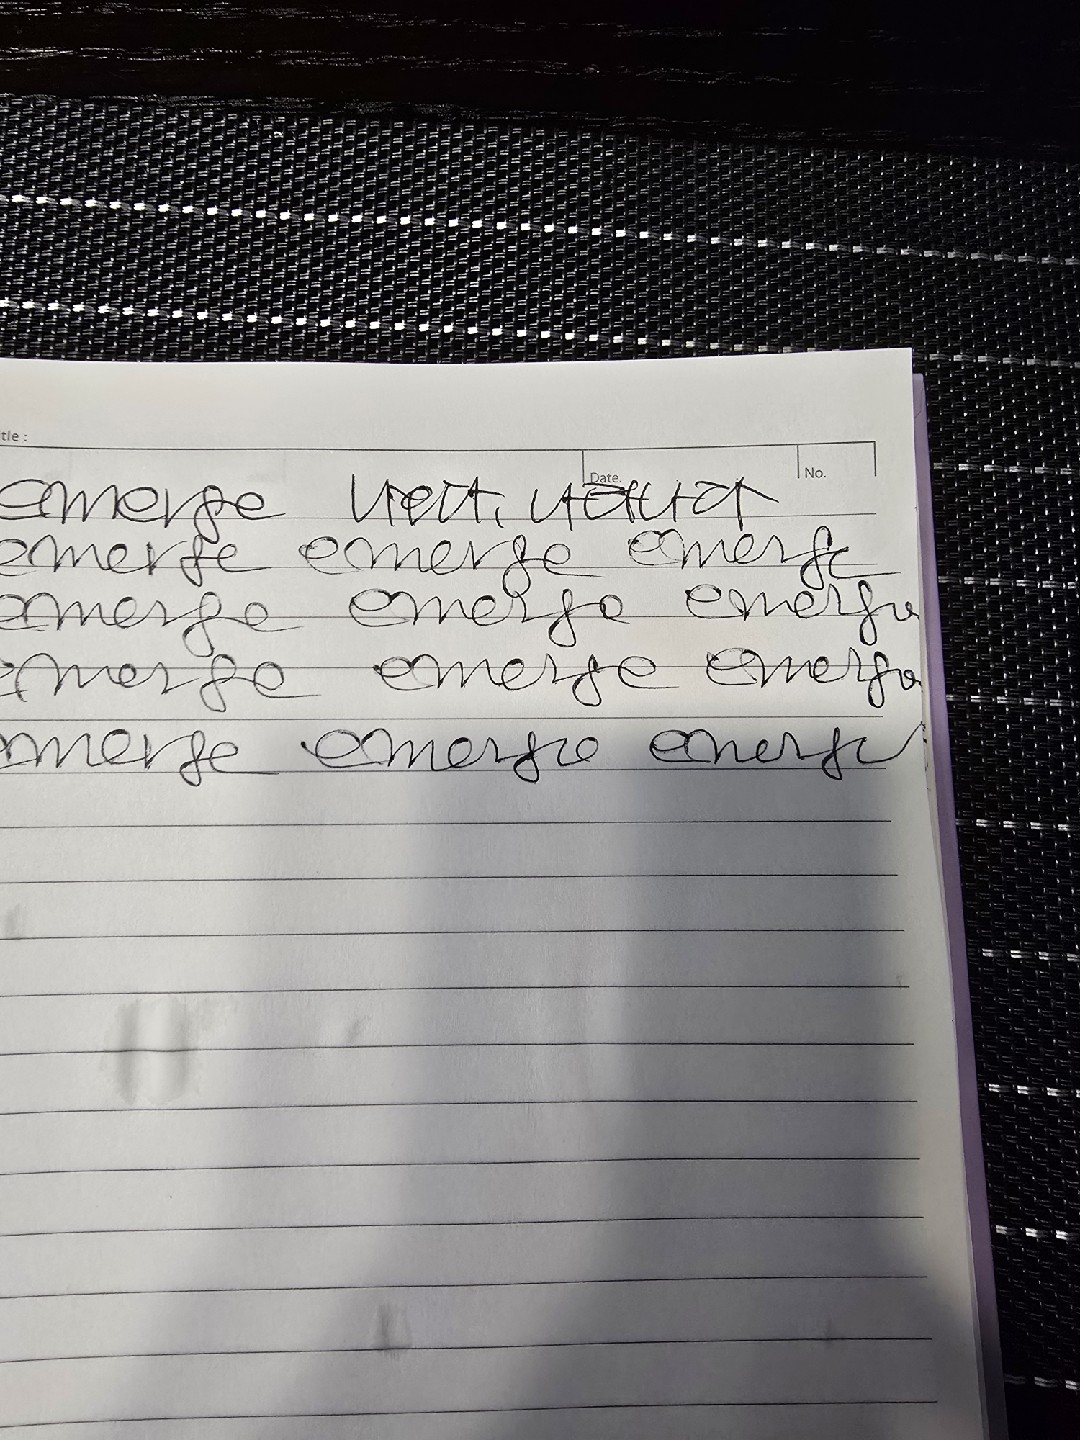 Title :
Date. No.
emerge
emerge emerge emerge
emerge emerge emerge
emerge emerge emerge
emerge emerge emerge